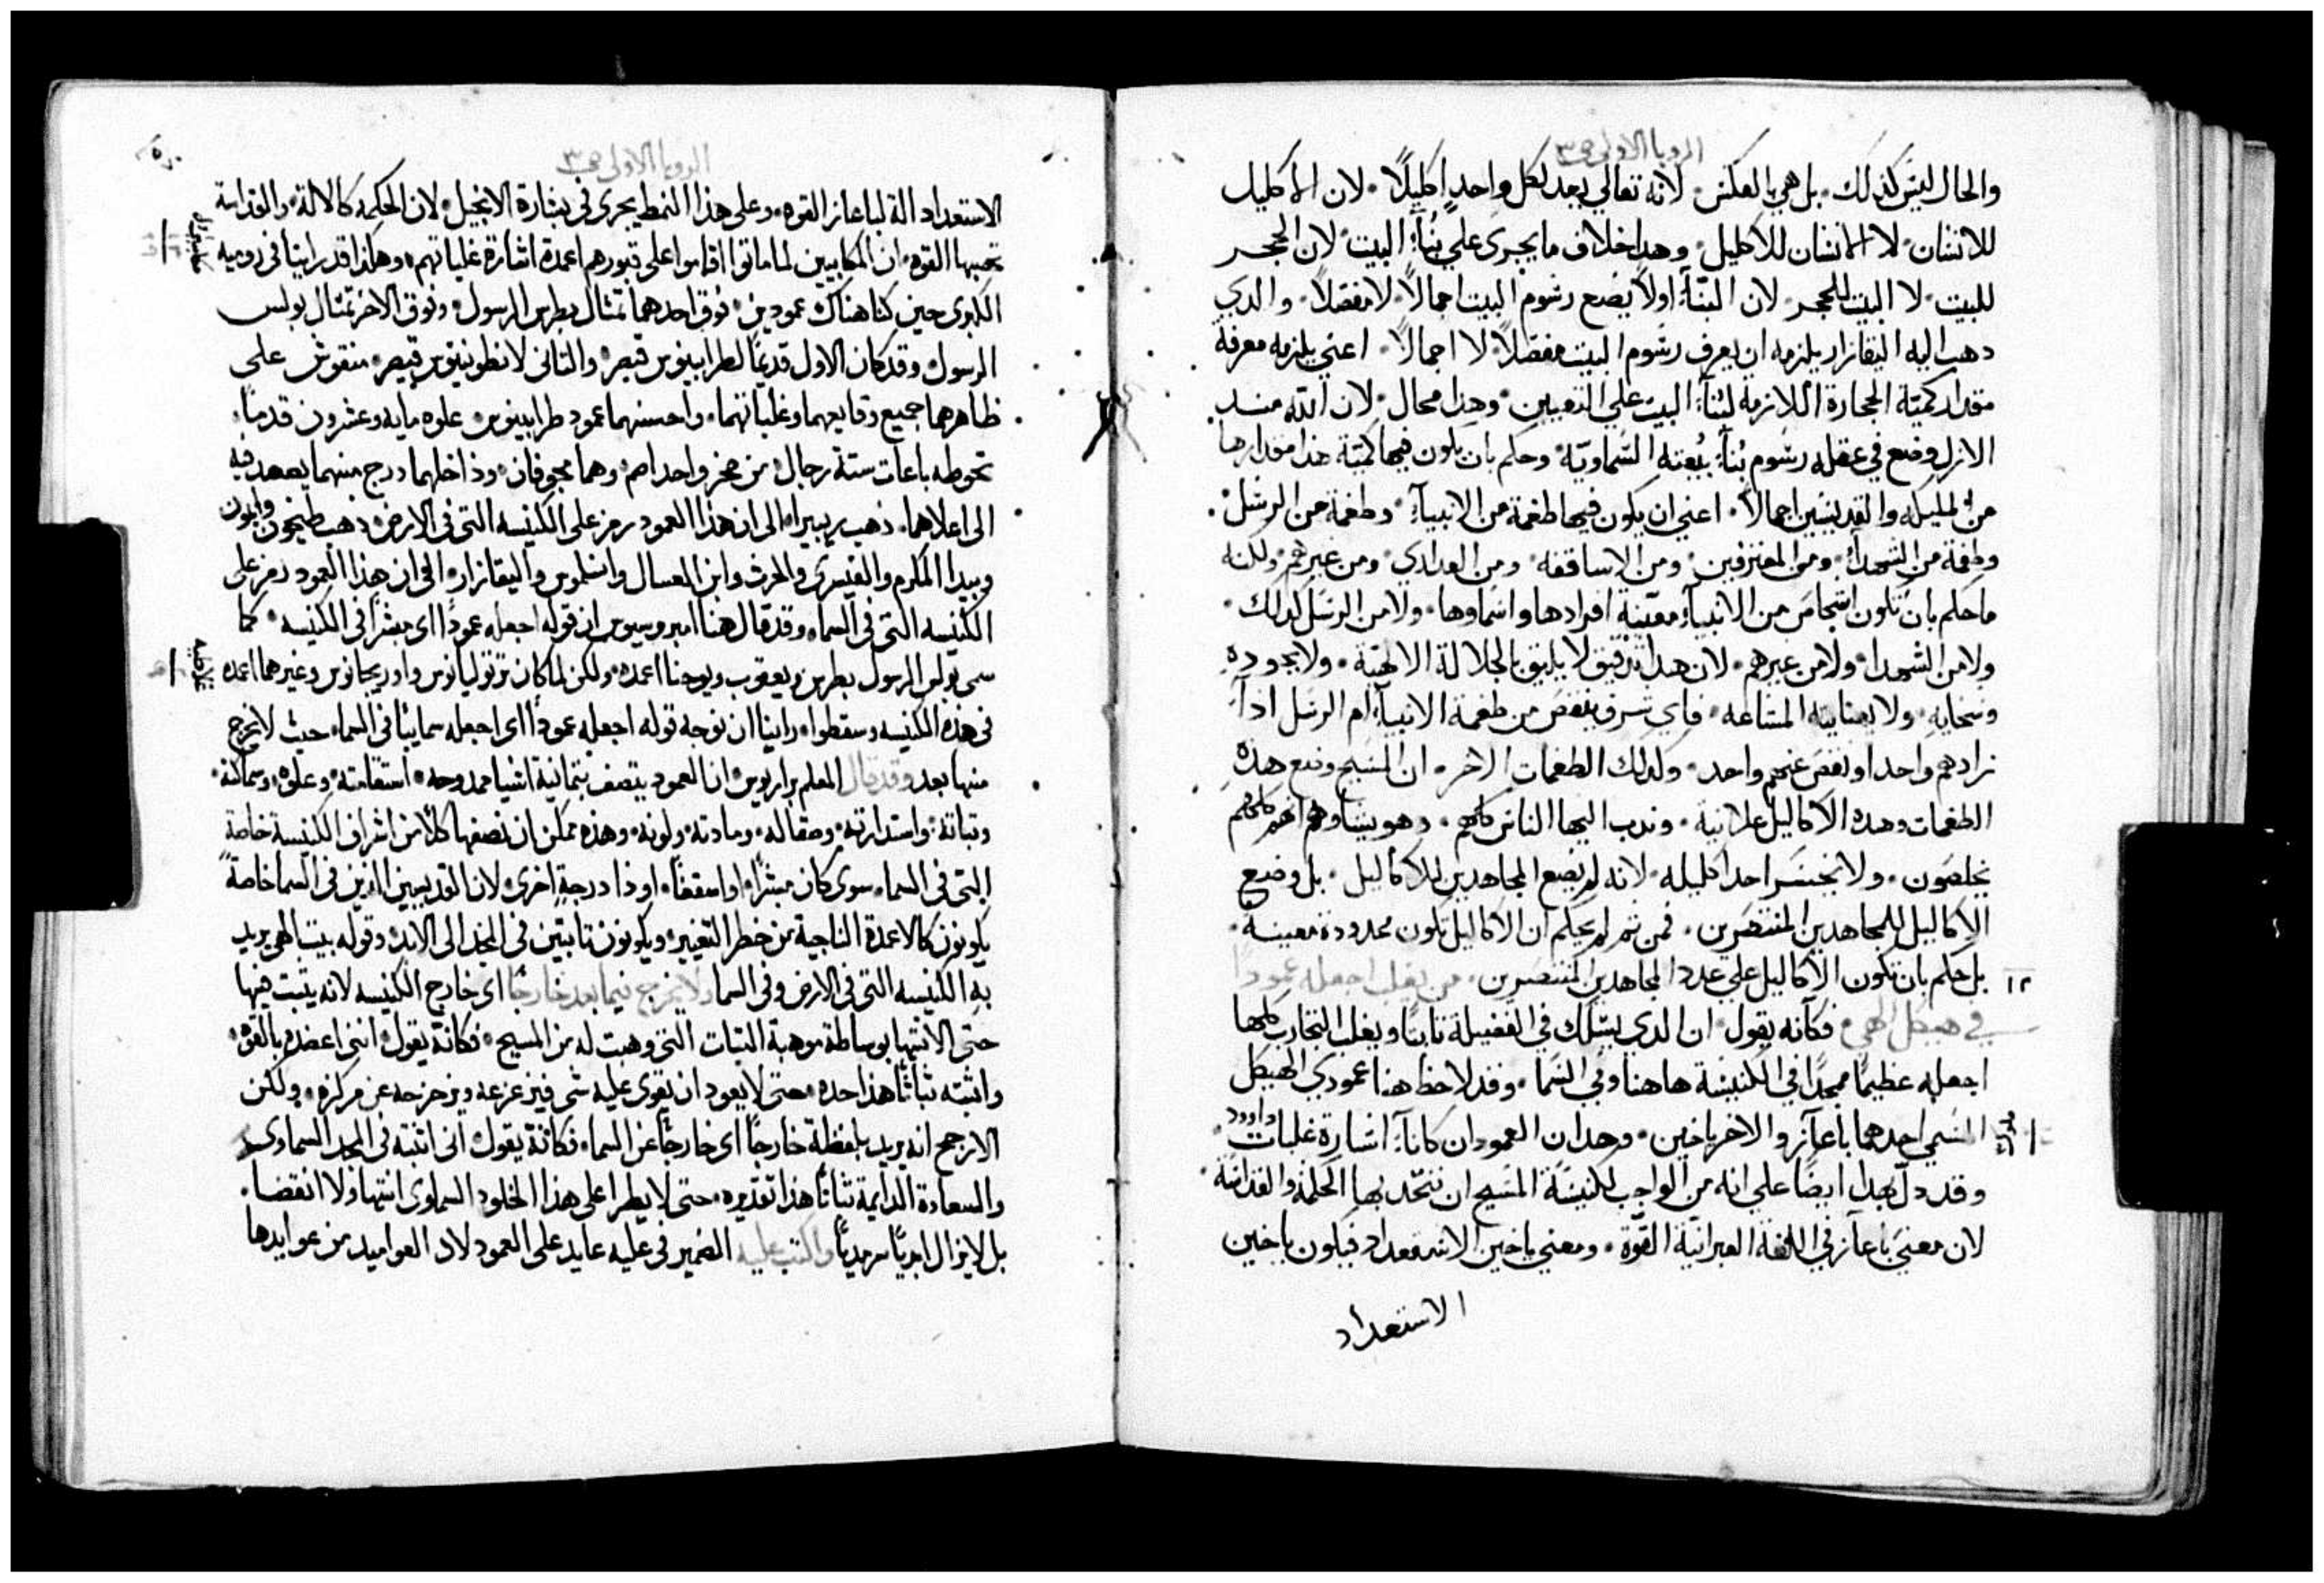 الرويا الاولى ص ٣
والحال ليس كذلك. بل هي بالعكس. لانه تعالى يعد لكل واحدٍ اكليلاً. لان الاكليل
للانسان لا الانسان للاكليل. وهدا خلاف ما يجرى علي بُنآء البيت لان الحجر
للبيت. لا البيت للحجر. لان البنّآء اولاً يضع رسوم البيت اجمالاً. لا مفصلاً. والدي
دهب اليه اليقازار يلزمه ان يعرف رسوم البيت مفصلاً لا اجمالاً. اعني يلزمه معرفة
مقدار كميّة الحجارة اللازمة لبُنآء البيت علي التعيين. وهدا محال. لان الله مند
الازل وضع في عقله رسوم بُنآء بيعته السماويّة. وحكم بان يكون فيها كميّة هدا مقدارها
من المليكه والقديسين اجمالاً. اعني ان يكون فيها طغمة من الانبيآء. وطغمة من الرسل.
وطغمة من الشهدآء. ومن المعترفين. ومن الاساقفه. ومن العدارى. ومن غيرهم. ولكنه
ما حكم بان تكون اشخاص من الانبيآء معيّنة افرادها واسماوها. ولا من الرسل كدلك.
ولا من الشهدا. ولا من غيرهم. لان هدا تدقيق لا يليق بالجلالة الالهيّة. ولا بجوده
وسخايه. ولا بعنايته المشاعه. فاي شرف ينقص من طغمة الانبيآء ام الرسل ادآ
زادهم واحد او نقص عنهم واحد. وكدلك الطغمات الاخر. ان المسيح وضع هده
الطغمات وهده الاكاليل علانية. وندب اليها الناس كلهم. وهو يشا وهم انهم كلهم
يخلصون. ولا يخسر احد اكليله. لانه لم يضع المجاهدين للاكاليل. بل وضع
الاكاليل للمجاهدين المنتصرين. فمن ثم لم يحكم ان الاكاليل تكون محدودة معينة.
١٢ بل حكم بان تكون الاكاليل علي عدد المجاهدين المنتصرين. من يغلب اجعله عمودًا
في هيكل الهي. فكآنه يقول ان الدي يسلك في الفضيلة ثابتًا ويغلب التجارب كلها
اجعله عظيمًا ممجدًا في الكنيسة هاهنا وفي السما. وقد لاحظ هنا عمودي الهيكل
المسمي احدهما باعآز والاخر ياخين. وهدان العمودان كانآ اشارة غلبات داوود.
وقد دلّ بهدا ايضًا علي انه من الواجب لكنيسة المسيح ان تتخد بها الحكمة والقداسة.
لان معنى باعآز في اللغة العبرانيّة القوّة. ومعني ياخين الاستعداد فيكون ياخين
الاستعداد
الرويا الاولى ص ٣
الاستعداد الة لباعاز القوه. وعلى هذا النمط يجرى فى بشارة الانجيل. لان الحكمه كالالة. والقداسة
تحبها القوه. ان المكابيين لما ماتوا اقاموا على قبورهم اعمدة اشارة غلباتهم. وهكذا قد راينا فى روميه
الكبرى حين كنا هناك عمودين. فوق احدهما تمثال بطرس الرسول. وفوق الاخر تمثال بولس
الرسول. وقد كان الاول قديمًا لطرابينوس قيصر. والثانى لانطونينوس قيصر. منقوش على
ظاهرهما جميع وقايعهما وغلباتهما. واحسنهما عمود طرابينوس. علوه مايه وعشرون قدمًا.
تحوطه باعات ستة رجال. من صخر واحد اصم. وهما مجوفان. وداخلهما درج منهما يصعد فيه
الى اعلاهما. ذهب ريبيرا الى ان هذا العمود رمز على الكنيسه التى فى الارض. ذهب طيخون
وبيدا المكرم والقيسرى والحرث وابن العسال وانسلموس واليقازار الى ان هذا العمود رمز على
الكنيسه التى فى السما. وقد قال هنا امبروسيوس ان قوله اجعله عمودًا اى مبشرًا فى الكنيسه. كما
سمى بولس الرسول بطرس ويعقوب ويوحنا اعمده. ولكن لما كان ترتوليانوس واوريجانوس وغيرهما اعمده
فى هذه الكنيسه وسقطوا. راينا ان نوجه قوله اجعله عمودًا اى اجعله سمايئا فى السما. حيث لا يخرج
منها بعد. وقد قال المعلم براريوس ان العمود يتصف بثمانية اشيا ممدوحه. استقامته. وعلوه. وسماكته.
وثباته. واستدارته. وصقاله. ومادته. ولونه. وهذه ممكن ان نصف بها كلاً من اشراف الكنيسة خاصة
التى فى السما. سوى كان مبشرًا. او اسقفًا. او ذا درجةٍ اخرى. لان القديسين الذين فى السما خاصةً
يكونون كالاعمدة الناجية من خطر التغيير. ويكونون ثابتين فى المجد الى الابد. وقوله بيت الهى يريد
به الكنيسه التى فى الارض وفى السما. ولا يخرج فيما بعد خارجًا اى خارج الكنيسه لانه يثبت فيها
حتى الانتها بوساطة موهبة الثبات التى وهبت له من المسيح. فكانه يقول اننى اعضده بالقوه.
واثبته ثباتًا هذا حده. حتى لا يعود ان يقوى عليه شى فيزعزعه ويزحزحه عن مركزه. ولكن
الارجح انه يريد بلفظة خارجًا اى خارجًا عن السما. فكانه يقول انى اثبته فى المجد السماوى
والسعادة الدايمة ثباتًا هذا تقديره. حتى لا يطرا على هذا الخلود السماوى انتها ولا انقضا.
بل لا يزال ابديًا سرمديًا واكتب عليه الضمير فى عليه عايد على العمود لان العواميد من عوايدها